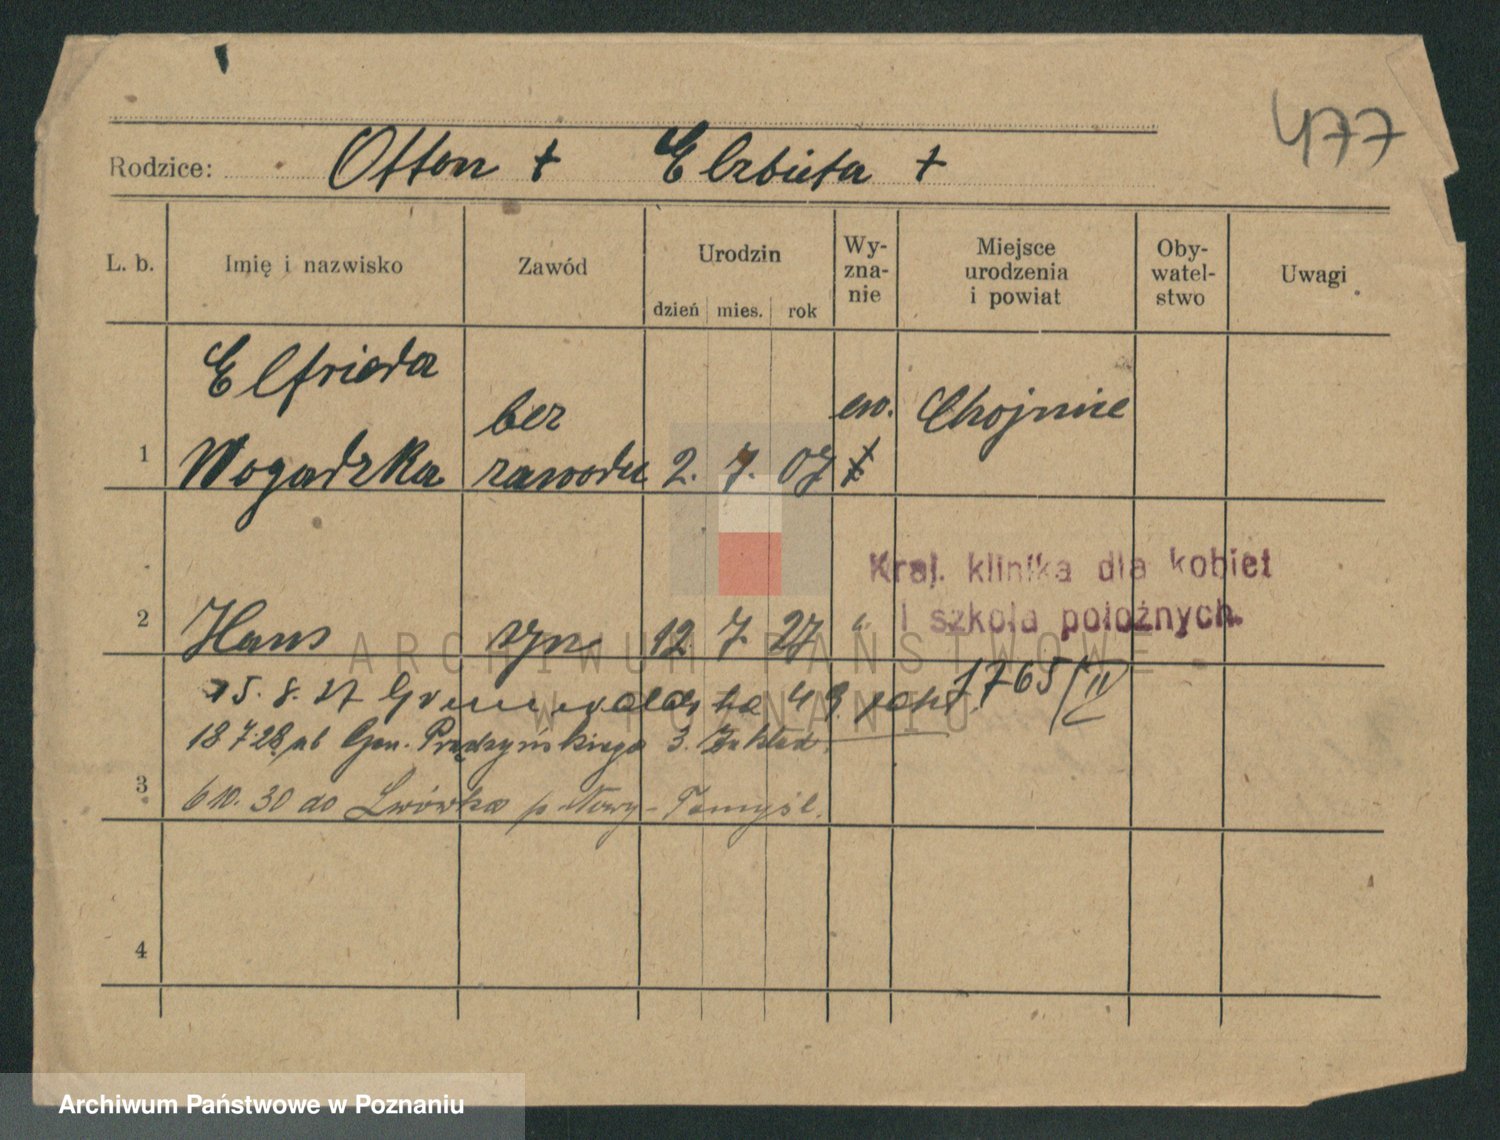 477
Rodzice: Otton + Elzbieta +
L. b. Imię i nazwisko Zawód Urodzin dzień mies. rok Wy-zna-nie Miejsce urodzenia i powiat Oby-watel-stwo Uwagi
Elfrieda
bez ew. Chojnice
1 Wogadzka zawodu 2. 7. 07
Kraj. klinika dla kobiet
i szkoła położnych.
2 Hans syn 12. 7. 27 "
15. 8. 27 Grunwaldzka 49 1765/II
18 7 28 ab Gen. Prądzyńskiego 3. Zakład.
3 6 10. 30 do Lwówka p Nowy-Tomyśl.
4
ARCHIWUM PAŃSTWOWE
W POZNANIU
Archiwum Państwowe w Poznaniu